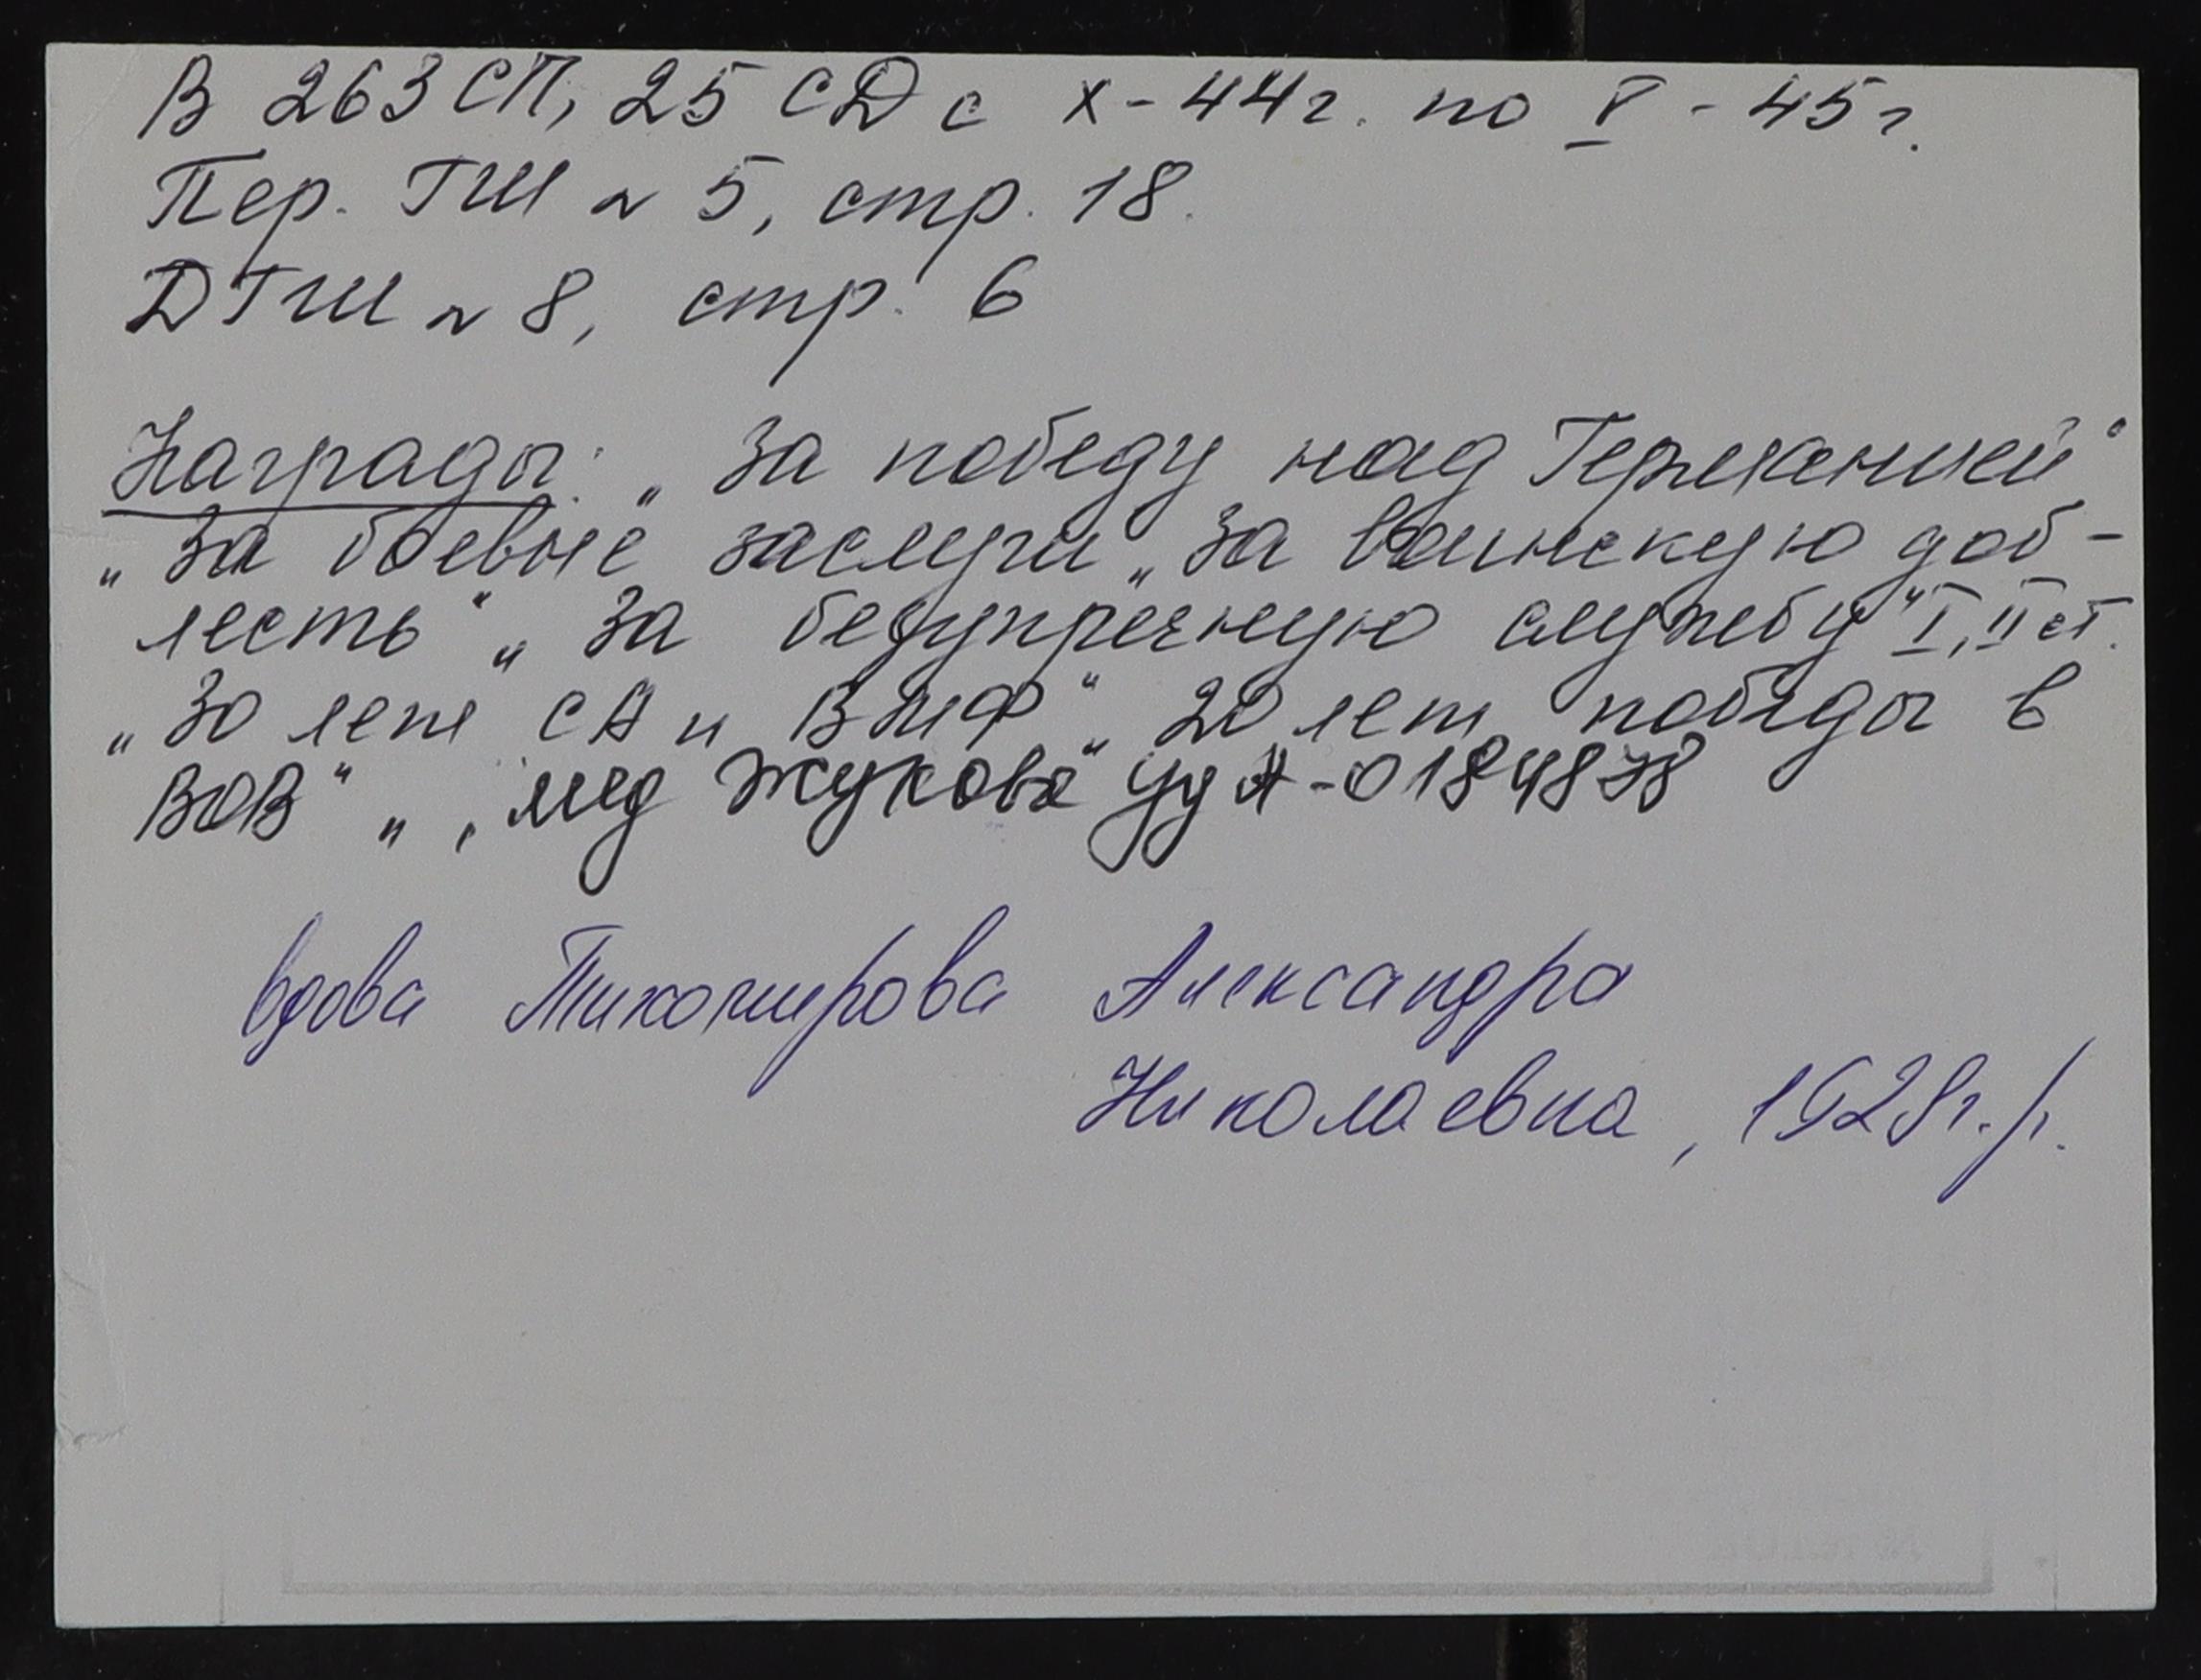 В 263 СП, 25 СД с X - 44 г. по V - 45 г.
Пер. ГШ N 5, стр. 18.
ДГШ N 8, стр. 6
Награды: „За победу над Германией“
„За боевые заслуги „За воинскую доб-
лесть“ „За безупречную службу“ I, II ст.
„30 лет СА и ВМФ“ „20 лет победы в
ВОВ“ „, мед Жукова“ Уд А-0184878
вдова Тихомирова Александра
Николаевна, 1928 г.р.